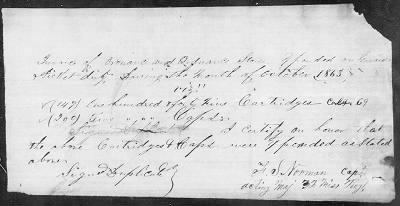 of Ordnance and Ordnance Stores Expended on
Picket duty During the Month of October 1863
"Viz"
(149) One hundred forty Nine Cartridges Calibre 69
(200) " " Caps
I Certify on honor that
the above Cartridges & Caps were Expended as Stated
above
Signed Duplicate
Norman Capt
acting Maj 22 Miss Regt